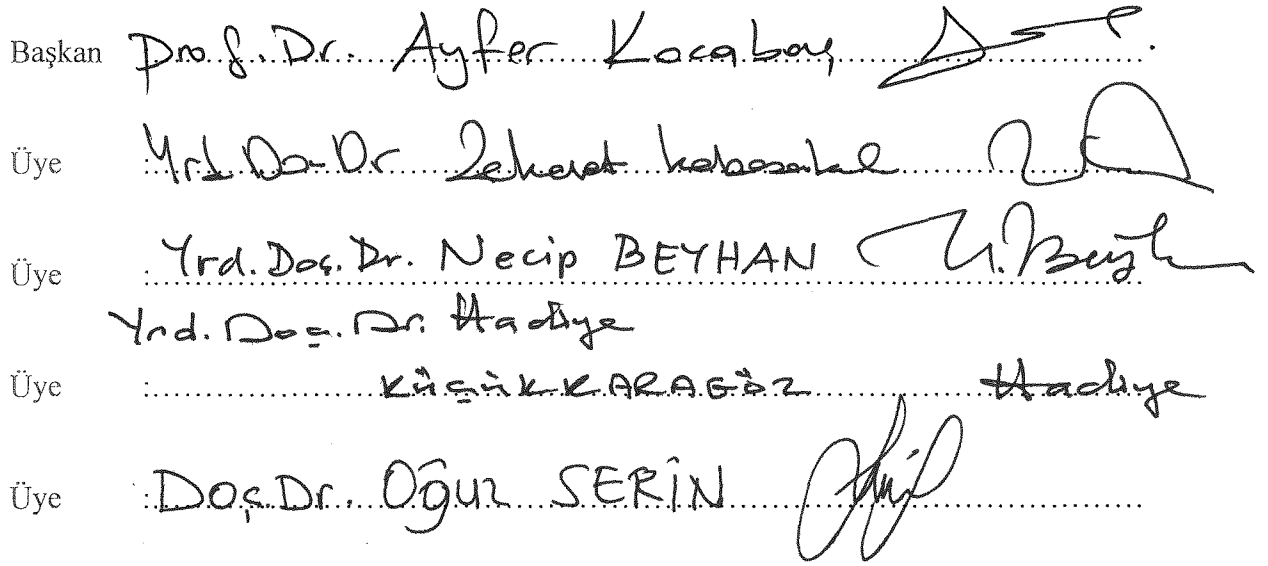 Başkan Prof. Dr. Ayfer Kocabaş
Üye : Yrd. Do- Dr
Üye : Yrd. Doç. Dr. Necip BEYHAN N. Beyh
Yrd. Doç. Dr. Hadiye
Üye : KÜÇÜKKARAGÖZ Hadiye
Üye : Doç. Dr. Oğuz SERİN